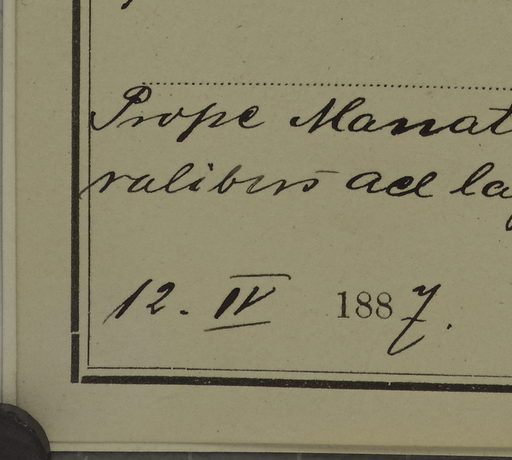 Prope Manat
ralibus ad la
12. IV 1887.